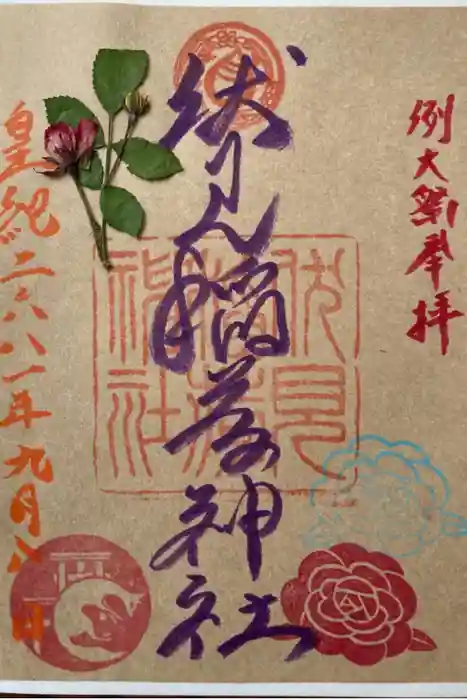 例大祭奉拝
伏見稲荷神社
皇紀二六八一年九月八日
伏見
稲荷
神社